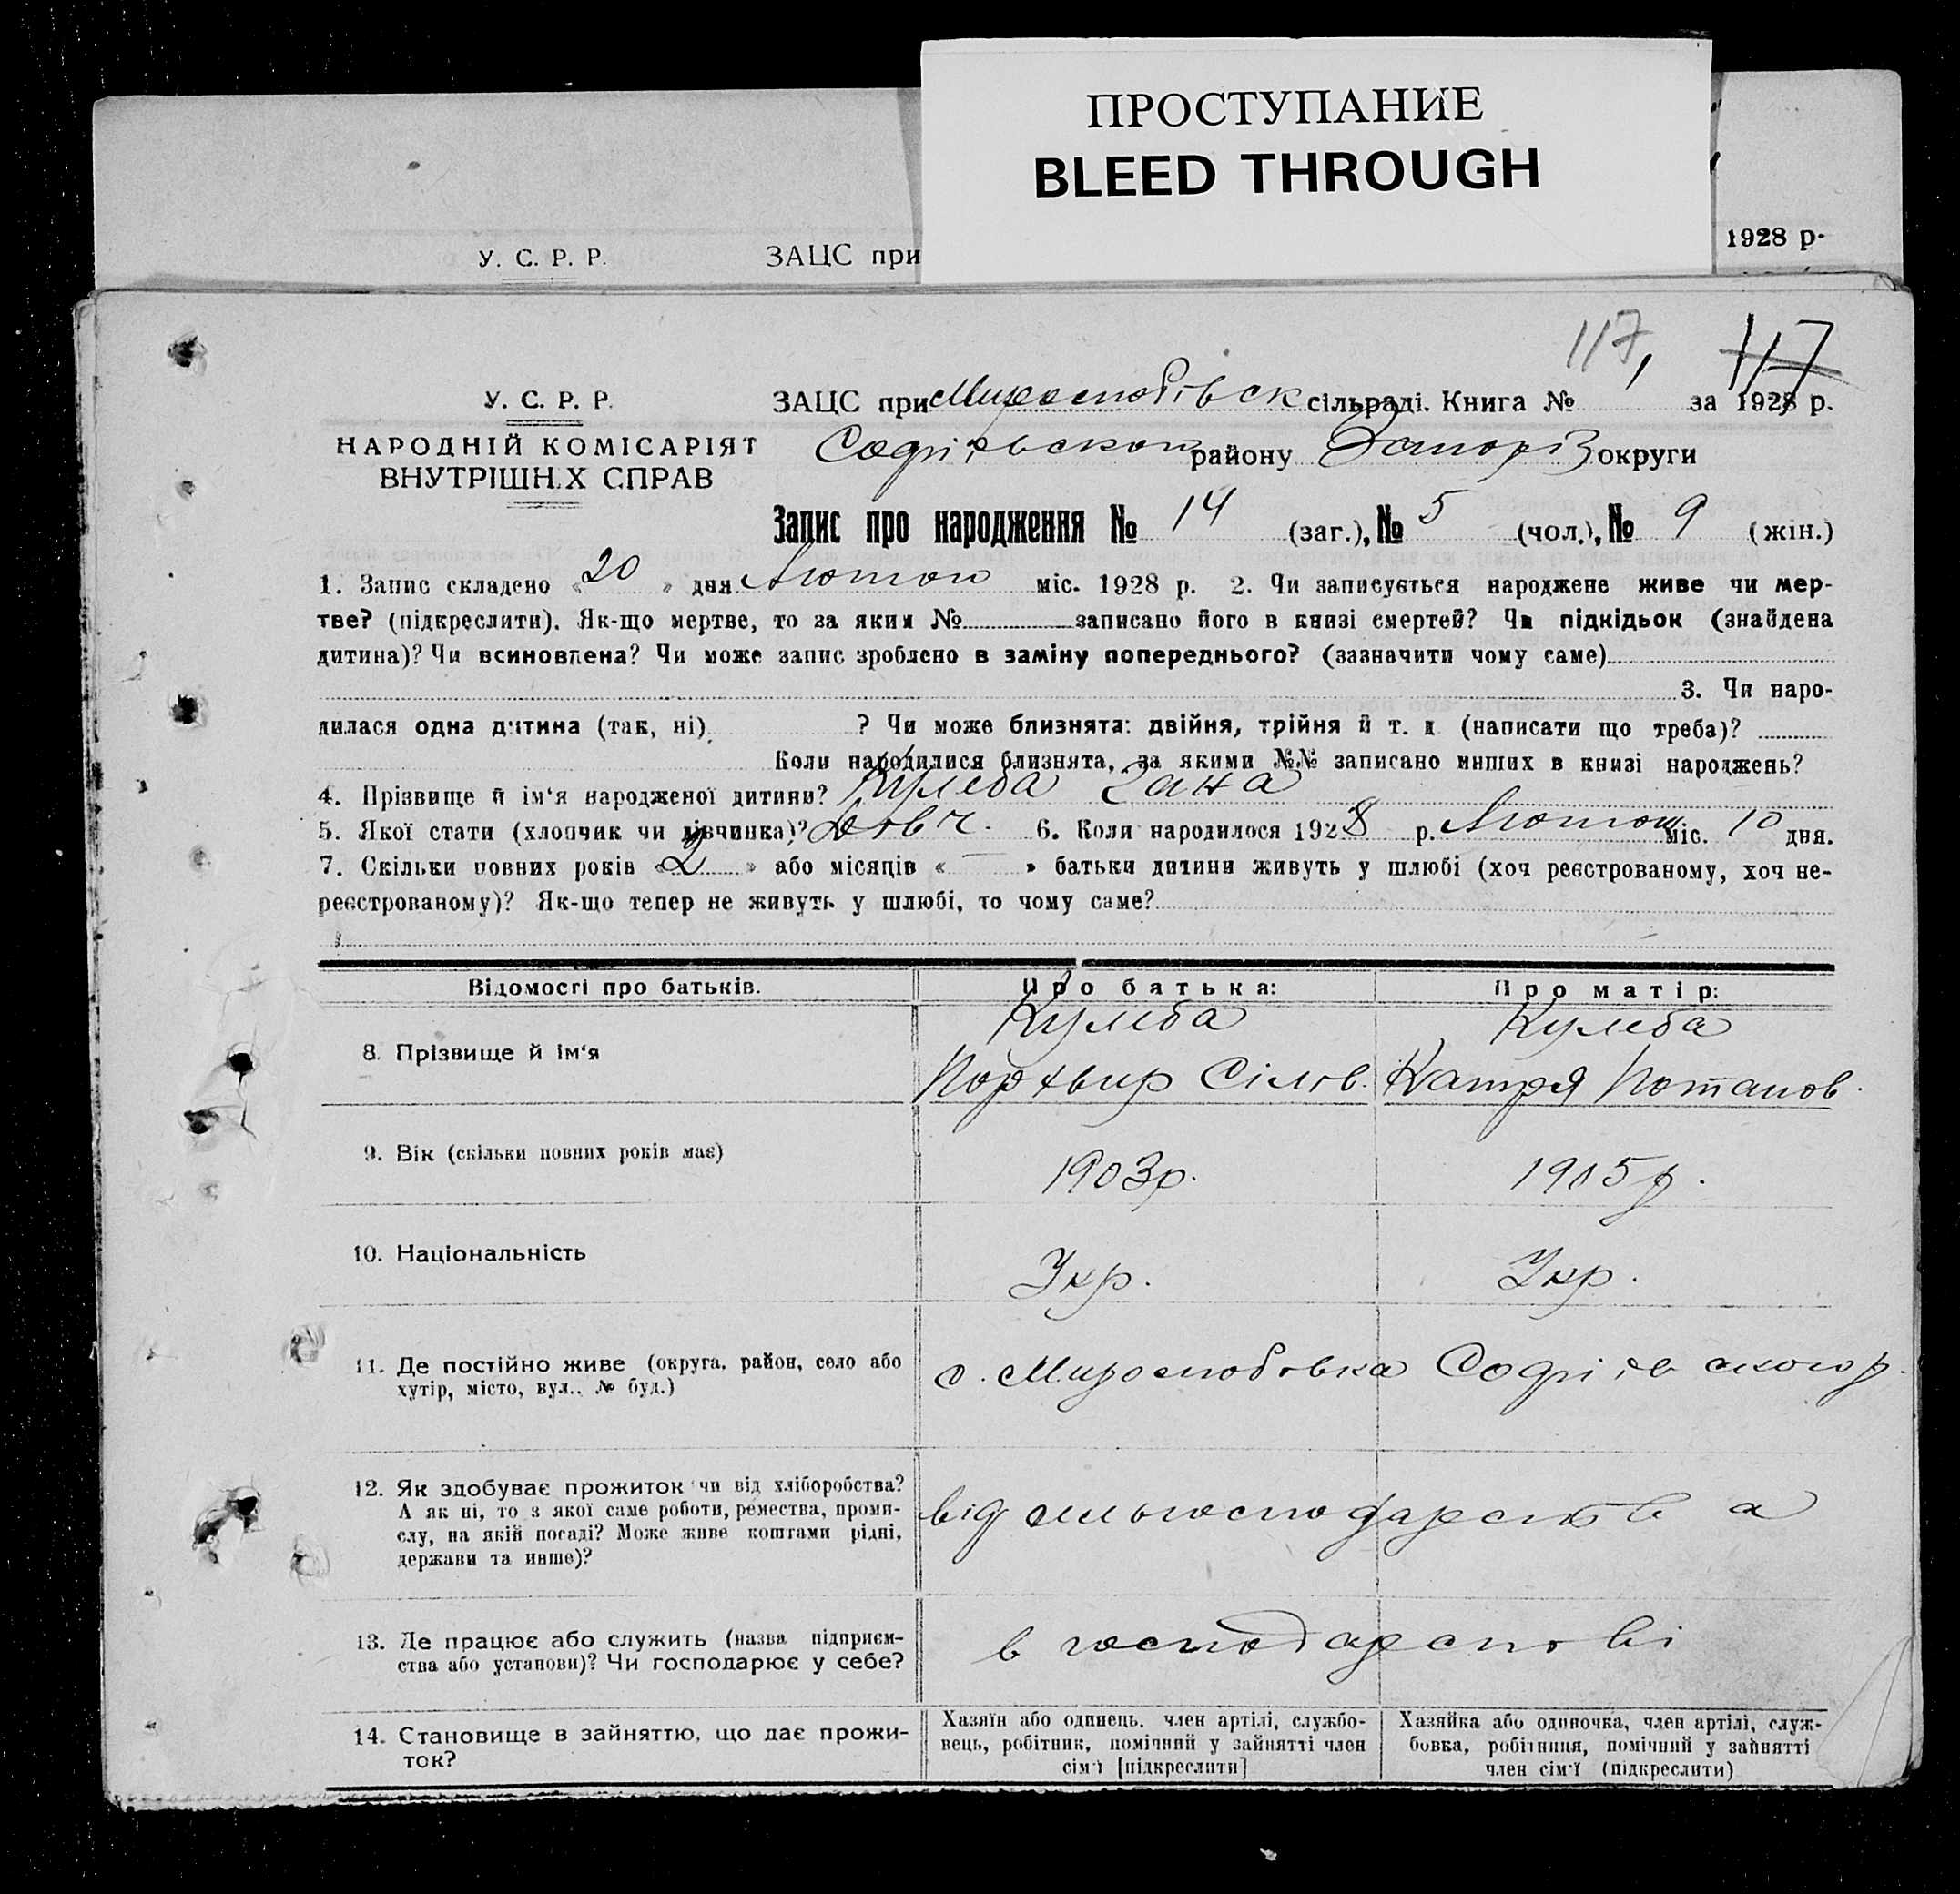 ПРОСТУПАНИЕ
BLEED THROUGH
У. С. Р. Р. ЗАЦС при 1928 р.
117, 117
У. С. Р. Р. ЗАЦС при сільраді. Книга № за 1928 р.
НАРОДНІЙ КОМІСАРІЯТ району Запоріз округи
ВНУТРІШНІХ СПРАВ
Запис про народження № 14 (заг.), № 5 (чол.), № 9 (жін.)
1. Запис складено « 20 » дня Лютого міс. 1928 р. 2. Чи записується народжене живе чи мер-
тве? (підкреслити). Як-що мертве, то за яким № записано його в книзі смертей? Чи підкідьок (знайдена
дитина)? Чи всиновлена? Чи може запис зроблено в заміну попереднього? (зазначити чому саме)
3. Чи наро-
дилася одна дитина (так, ні) ? Чи може близнята: двійня, трійня й т. д. (написати що треба)?
Коли народилися близнята, за якими №№ записано инших в книзі народжень?
4. Прізвище й ім'я народженої дитини? Кулеба Гана
5. Якої стати (хлопчик чи дівчинка)? Дівч. 6. Коли народилося 1928 р. Лютого міс. 10 дня.
7. Скільки повних років « 2 » або місяців « — » батьки дитини живуть у шлюбі (хоч реєстрованому, хоч не-
реєстрованому)? Як-що тепер не живуть у шлюбі, то чому саме?
Відомості про батьків. Про батька: Про матір:
Кулеба Кулеба
8. Прізвище й ім'я
Катря Потапов.
9. Вік (скільки повних років має) 1903р. 1905р.
10. Національність Укр. Укр.
11. Де постійно живе (округа, район, село або
хутір, місто, вул., № буд.)
12. Як здобуває прожиток чи від хліборобства?
А як ні, то з якої саме роботи, ремества, проми-
слу, на якій посаді? Може живе коштами рідні,
держави та инше)?
від сільгосподарства
13. Де працює або служить (назва підприєм-
ства або установи)? Чи господарює у себе?
в господарстві
14. Становище в зайняттю, що дає прожи-
ток?
Хазяїн або одинець, член артілі, службо-
вець, робітник, помічний у зайнятті член
сім'ї [підкреслити]
Хазяйка або одиночка, член артілі, служ-
бовка, робітниця, помічний у зайнятті
член сім'ї (підкреслити)